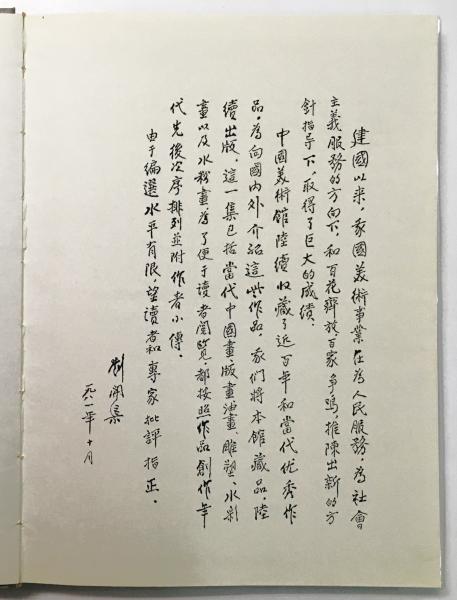 建國以来，我國美術事業在為人民服務，為社會
主義服務的方向下，和百花齊放百家争鳴，推陳出新的方
針指导下，取得了巨大的成績．
中國美術館陸續收藏了近百年和當代优秀作
品，為向國内外介紹這些作品，我們將本館藏品，陸
續出版，這一集包括當代中國畫、版畫、油畫、雕塑、水彩
畫以及水粉畫，為了便于讀者閱覽，都按照作品創作年
代先後次序排列並附作者小傳．
由于編選水平有限，望讀者和專家批評指正．
劉開渠
一九八一年十月